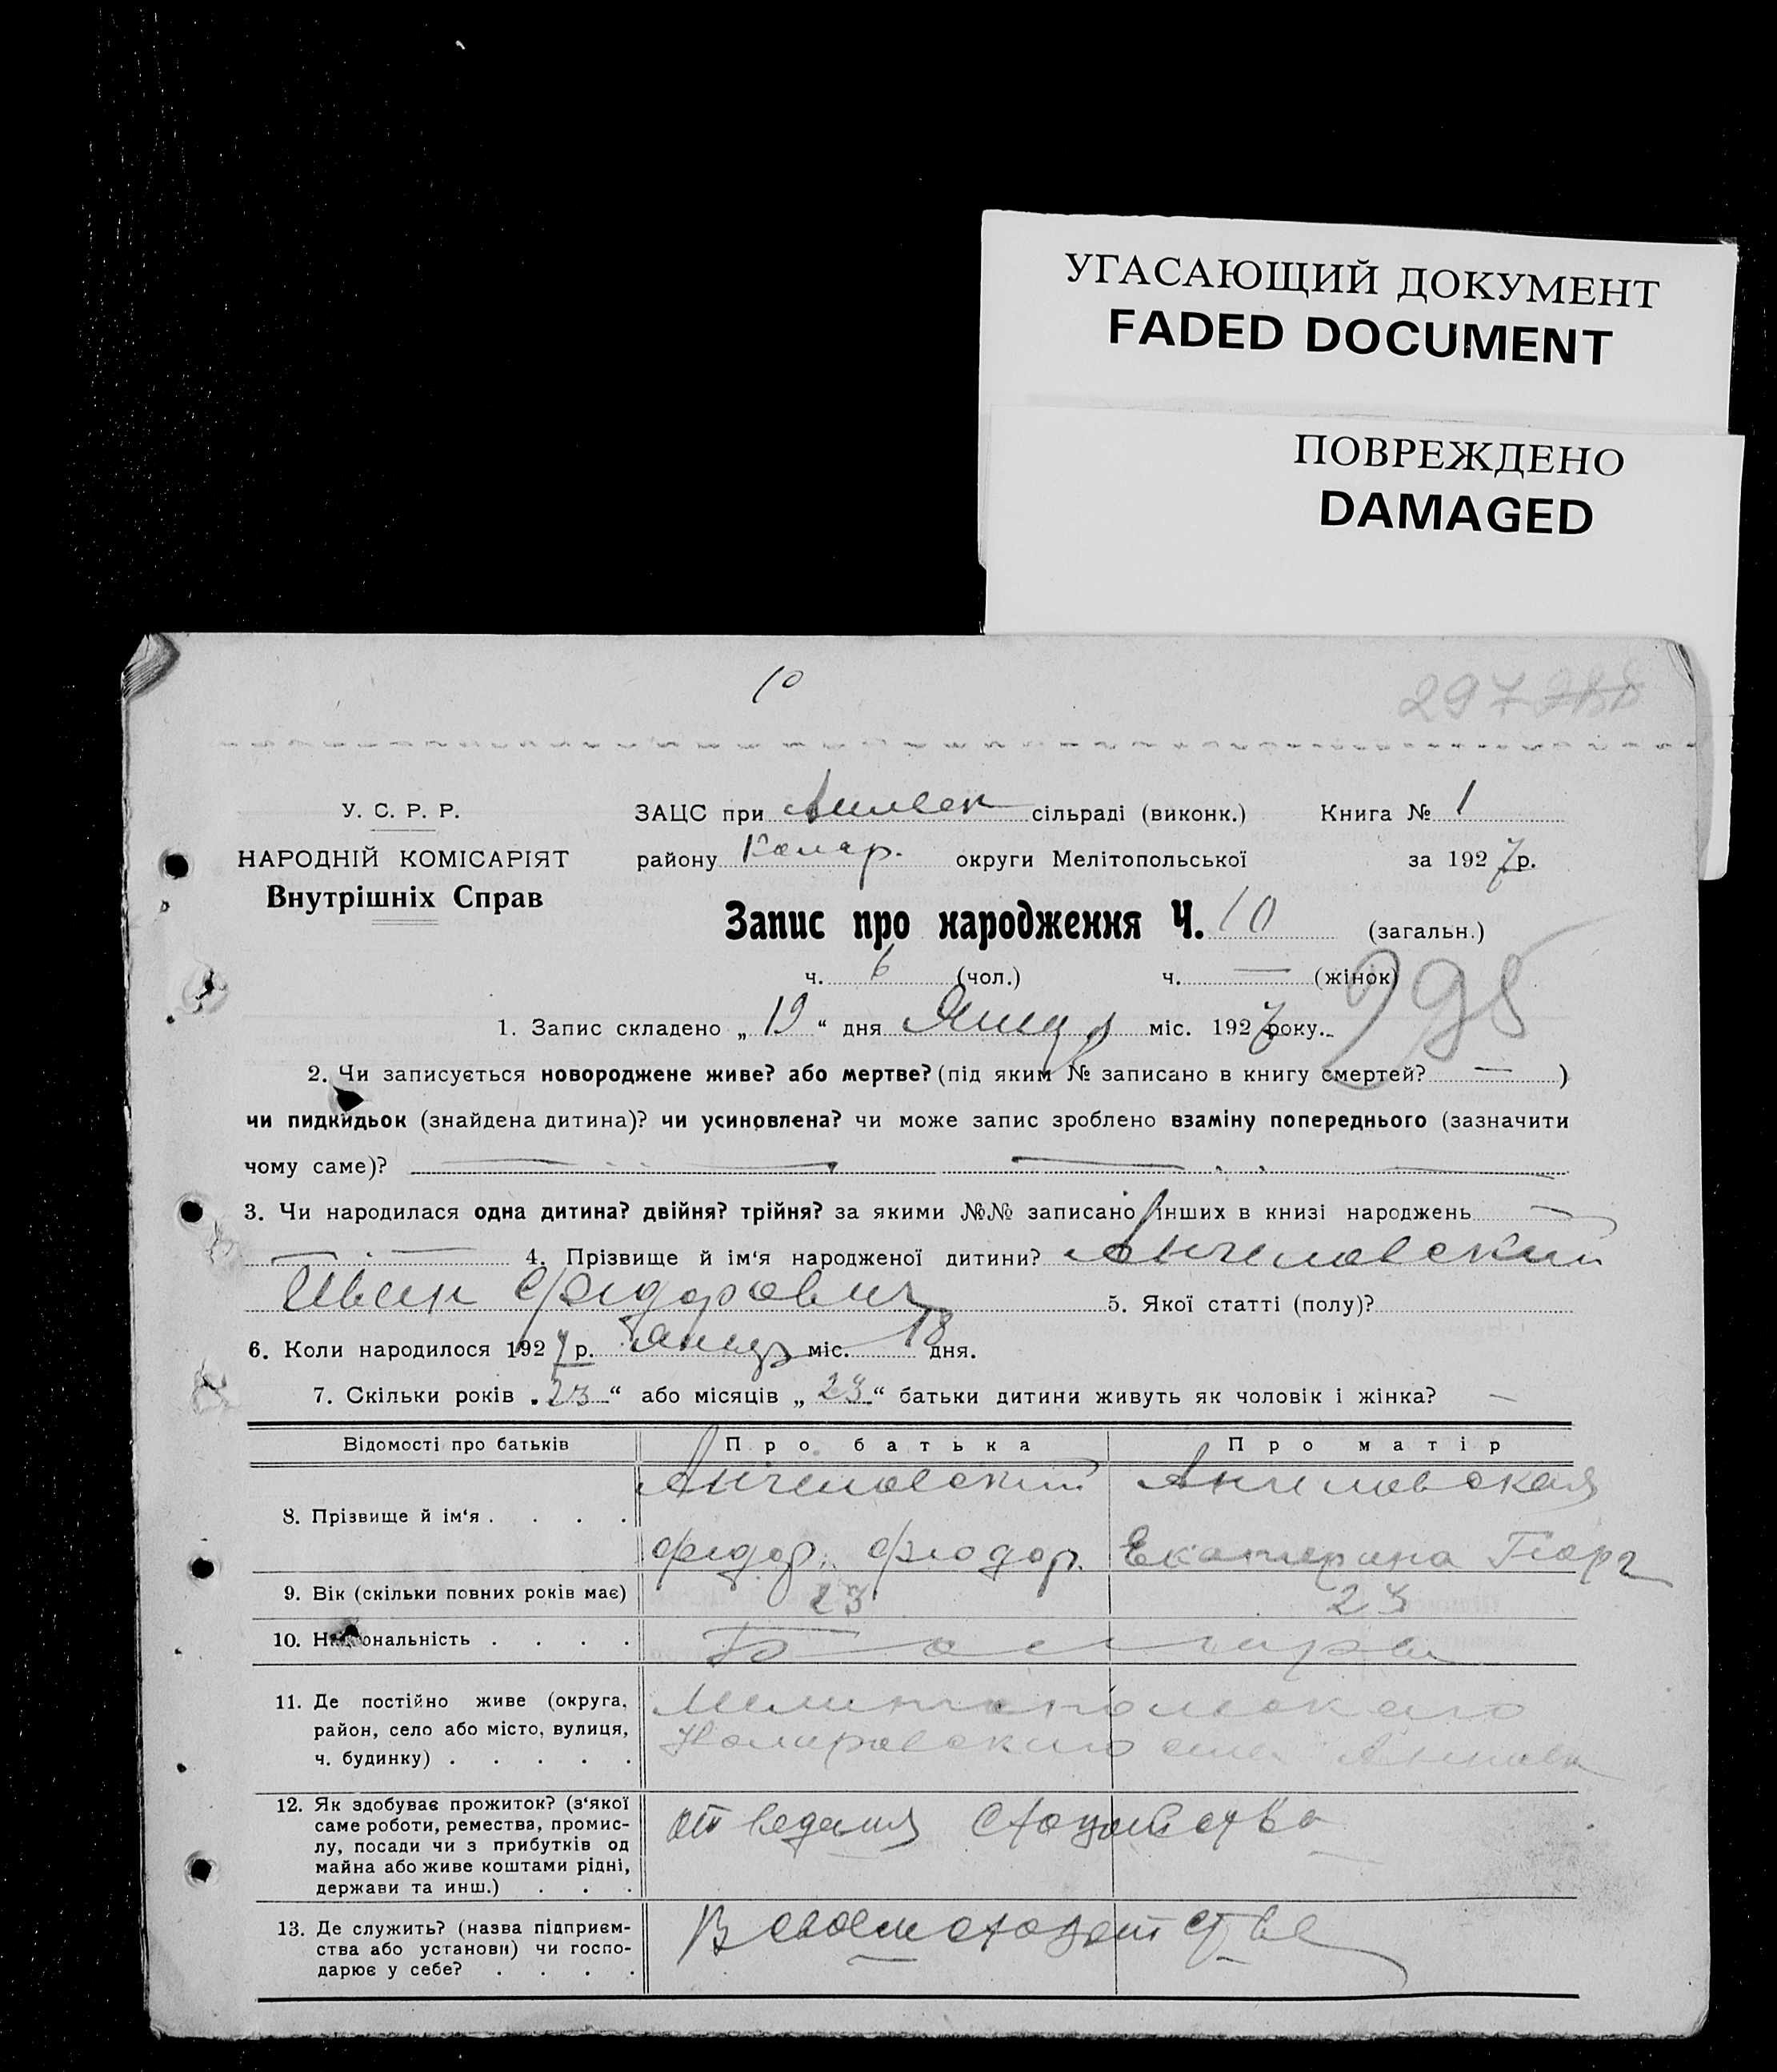 УГАСАЮЩИЙ ДОКУМЕНТ
FADED DOCUMENT
ПОВРЕЖДЕНО
DAMAGED
10
297
У. С. Р. Р.
НАРОДНІЙ КОМІСАРІЯТ
Внутрішніх Справ
ЗАЦС при сільраді (виконк.) Книга № 1
району Комар. округи Мелітопольської за 1927 р.
Запис про народження Ч. 10 (загальн.)
ч. 6 (чол.) ч. — (жінок)
298
1. Запис складено „19“ дня Янвр міс. 1927 року.
2. Чи записується новороджене живе? або мертве? (під яким № записано в книгу смертей? — )
чи пидкидьок (знайдена дитина)? чи усиновлена? чи може запис зроблено взаміну попереднього (зазначити
чому саме)?
3. Чи народилася одна дитина? двійня? трійня? за якими №№ записано інших в книзі народжень —
4. Прізвище й ім'я народженої дитини? Ангеловский
Иван Федорович 5. Якої статті (полу)?
6. Коли народилося 1927 р. Янвр міс. 18 дня.
7. Скільки років „23“ або місяців „23“ батьки дитини живуть як чоловік і жінка? —
Відомості про батьків Про батька Про матір
8. Прізвище й ім'я . . . . Ангеловский Ангеловская
Федор Федор. Екатерина Георг
9. Вік (скільки повних років має) 23 23
10. Національність . . . . Болгары
11. Де постійно живе (округа, Мелитопольского
район, село або місто, вулиця,
ч. будинку) . . . . .
12. Як здобуває прожиток? (з'якої
саме роботи, ремества, промис-
лу, посади чи з прибутків од
майна або живе коштами рідні,
держави та инш.) . . .
от
13. Де служить? (назва підприєм-
ства або установи) чи госпо-
дарює у себе? . . . .
В своем